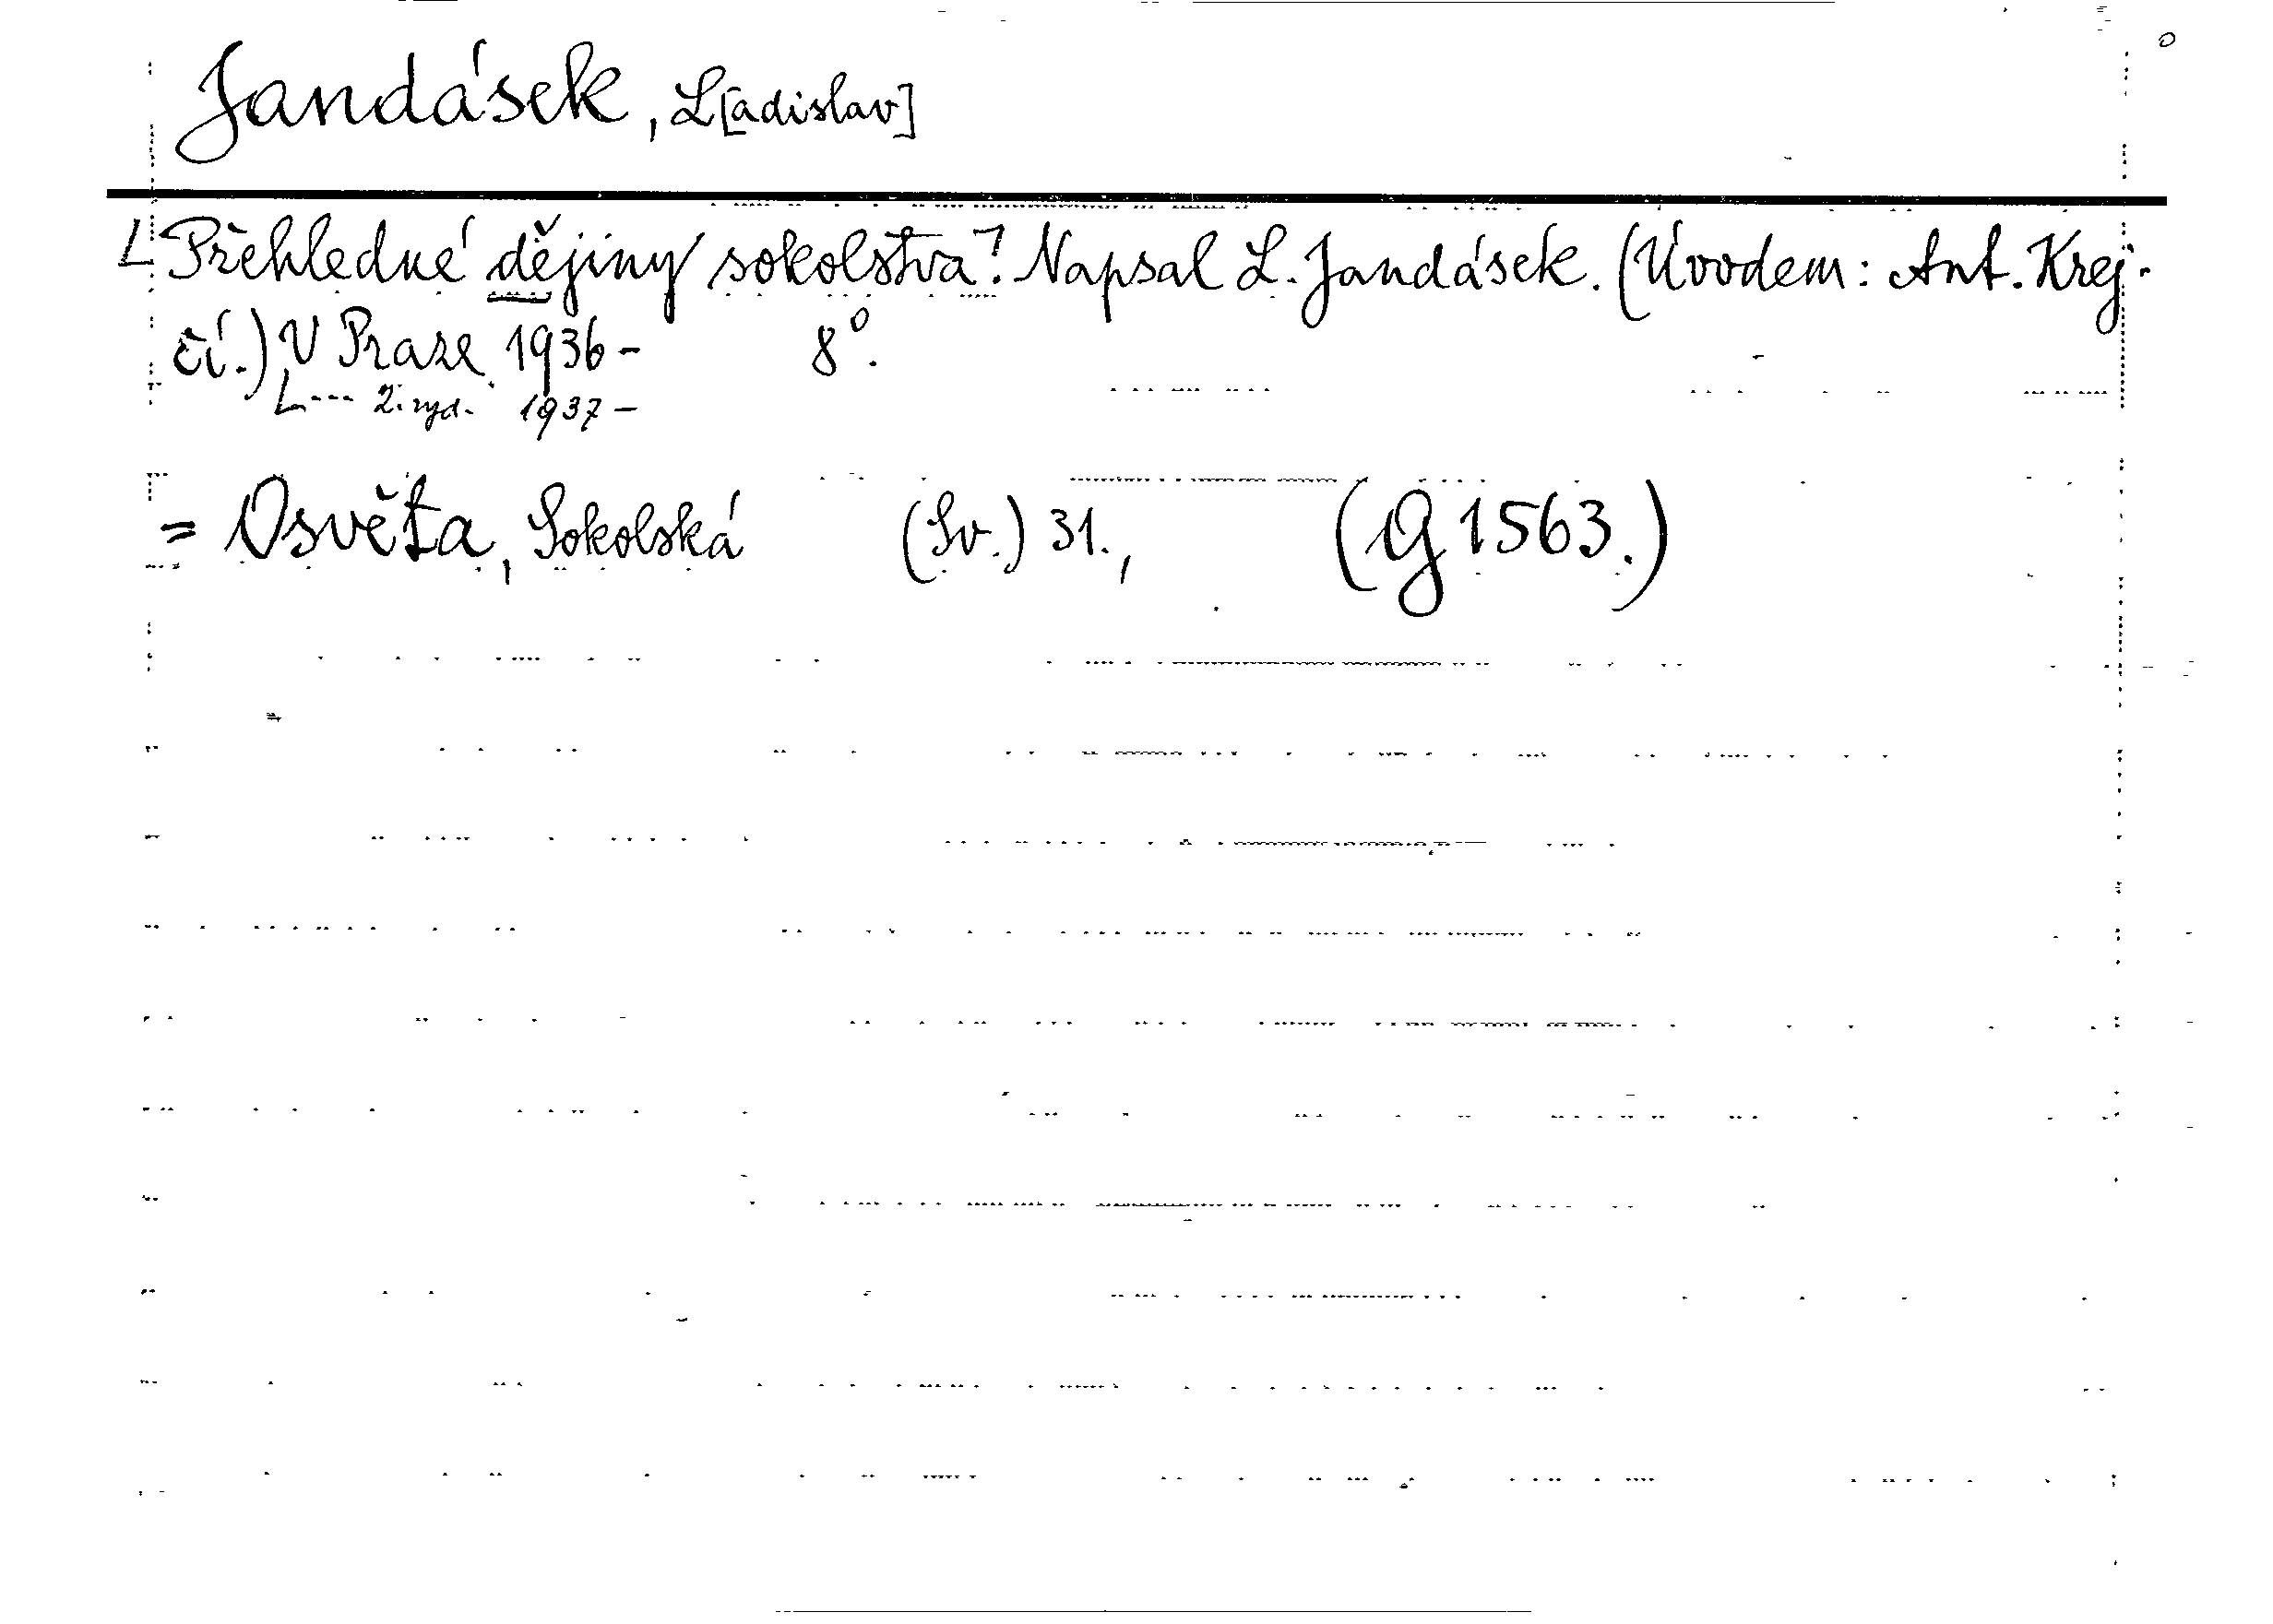 Jandásek, L[adislav]
Přehledné dějiny sokolstva. Napsal L. Jandásek. (Úvodem: Ant. Krej-
čí.) V Praze 1936 - 8°.
--- 2. vyd. 1937 -
= Osvěta, Sokolská (Sv.) 31., (G 1563.)